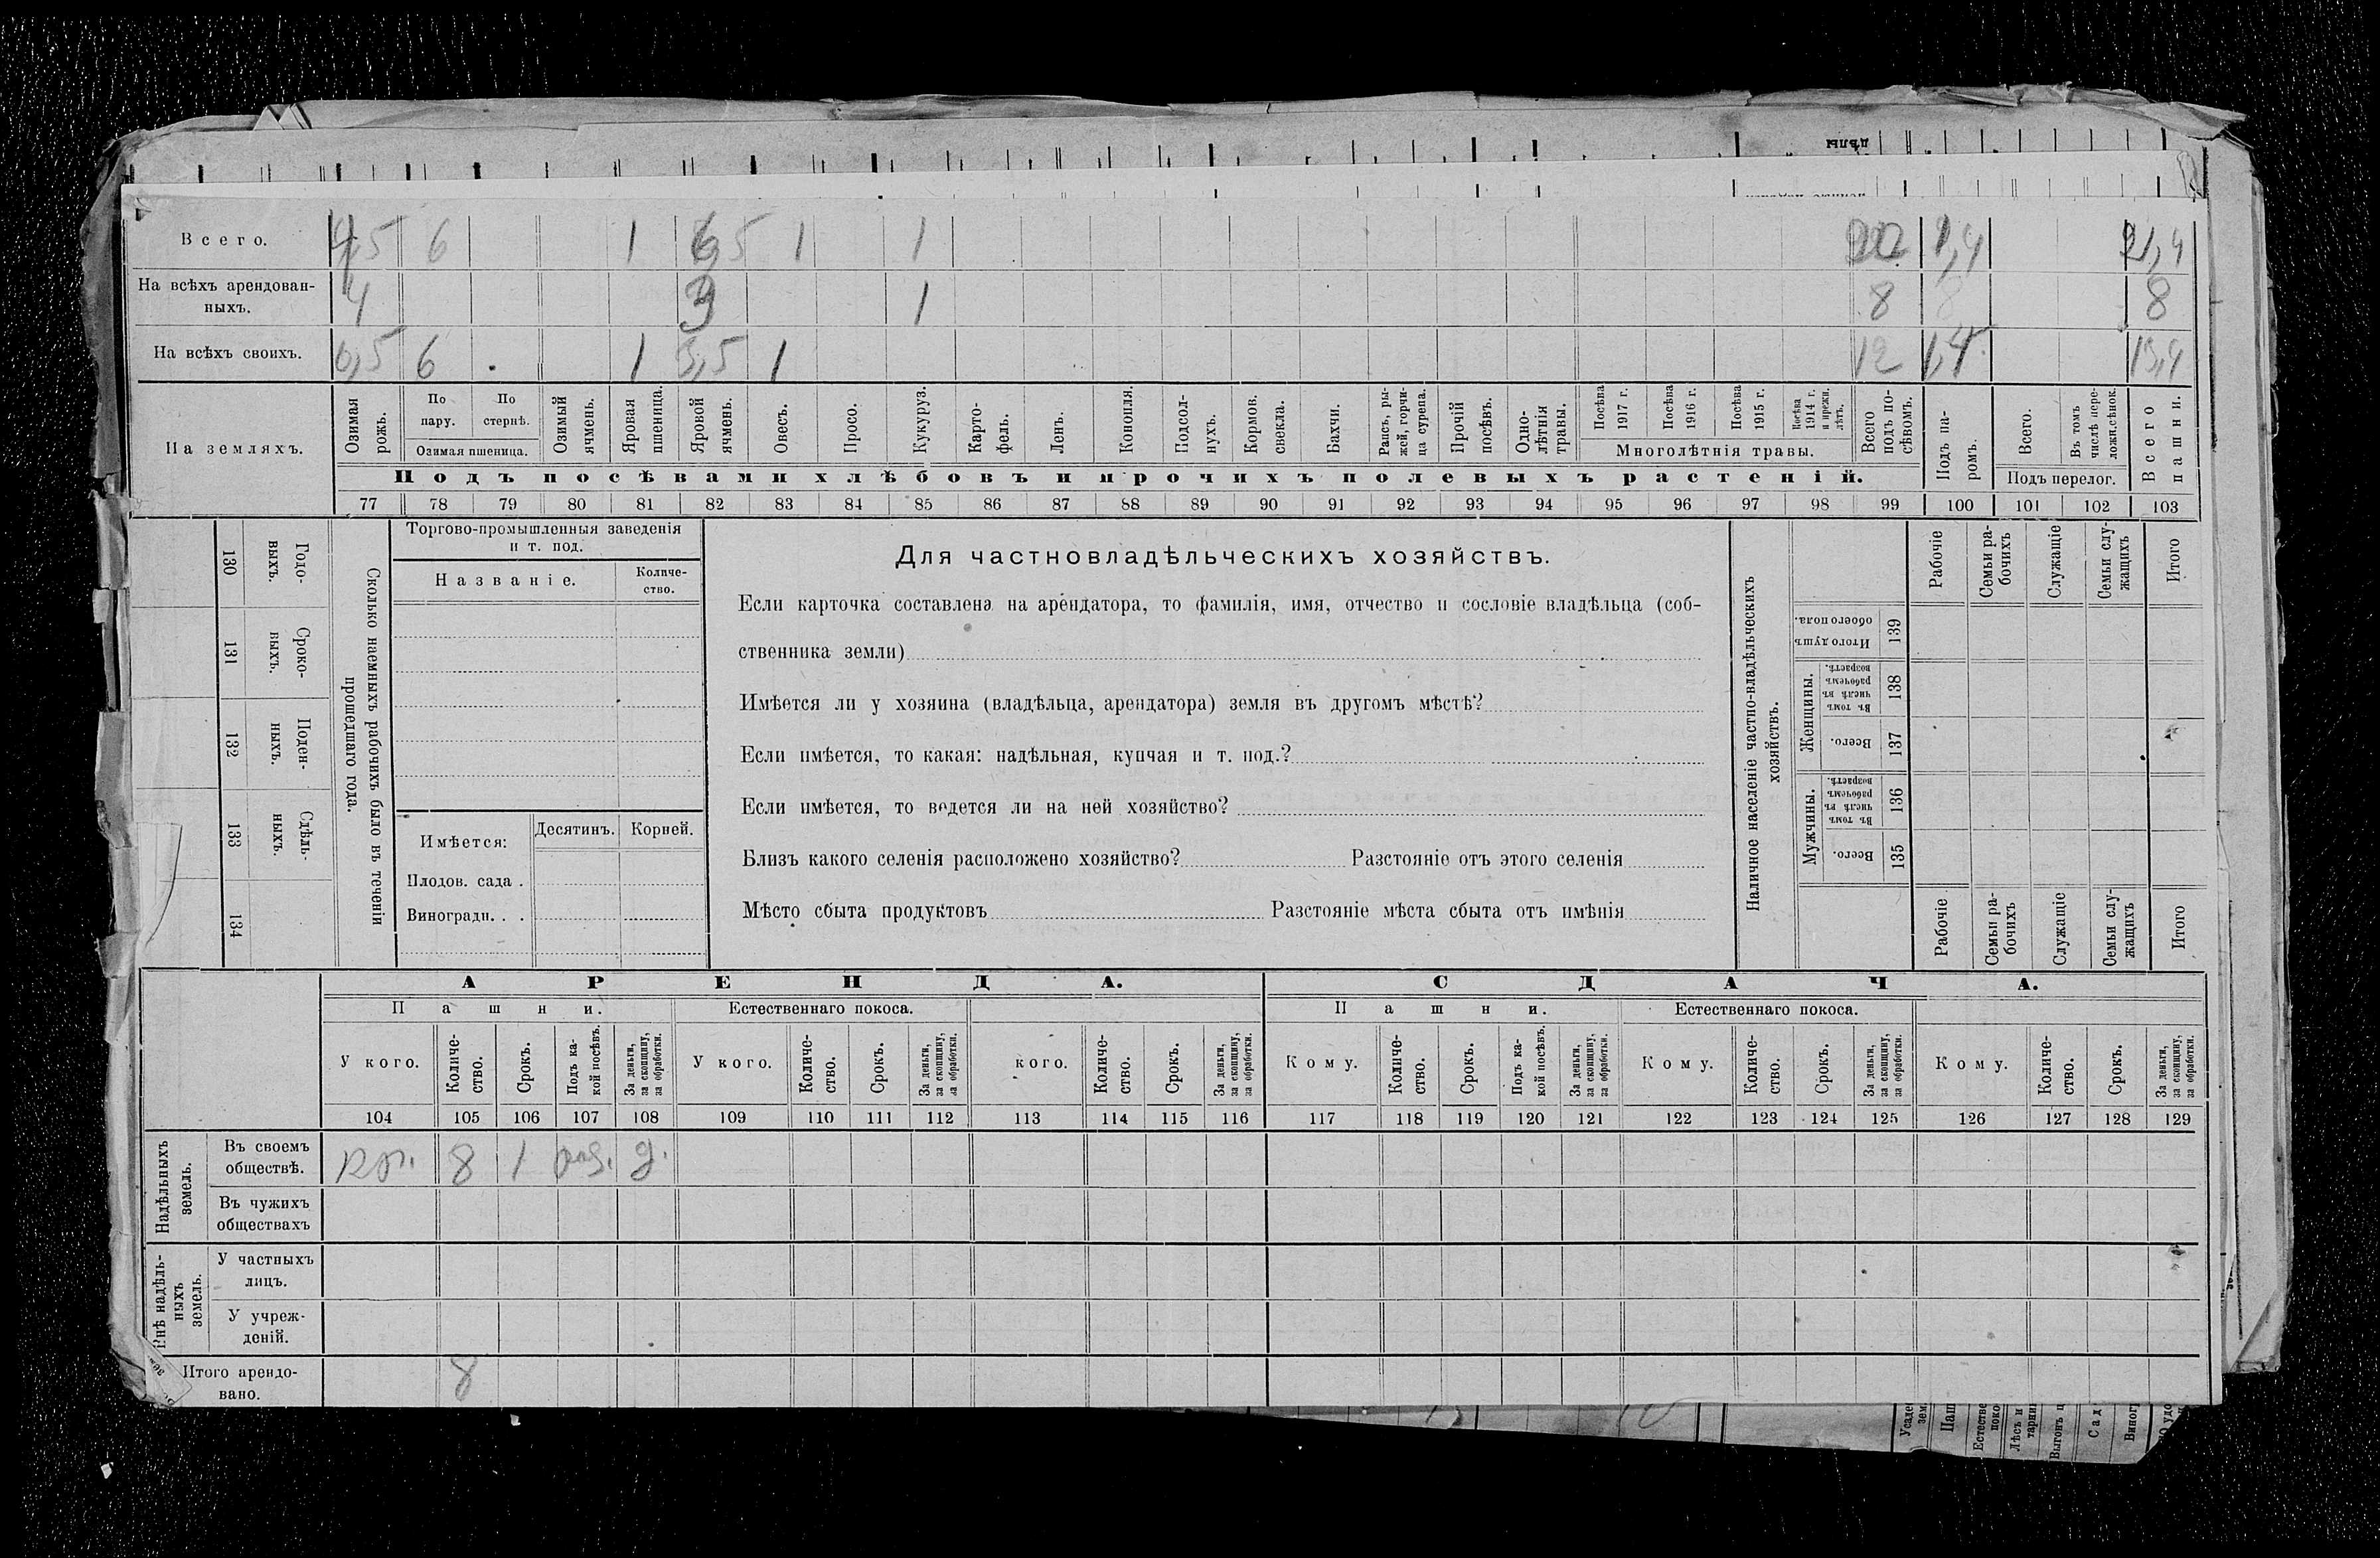 дѣлы
Всего. 4,5 6 1 6,5 1 1 20 1,4 21,4
На всѣхъ арендован-
ныхъ. 4 3 1 8 8
На всѣхъ своихъ. 0,5 6 1 3,5 1 12 1,4 13,4
На земляхъ.
Озимая рожь.
По пару.
По стернѣ.
Озимая пшеница.
Озимый ячмень.
Яровая пшеница.
Яровой ячмень.
Овесъ.
Просо.
Кукуруз.
Карто-
фель.
Ленъ.
Конопля.
Подсол-
нухъ.
Кормов. свекла.
Бахчи.
Рапсъ, ры-
жей, горчи-
ца сурепа.
Прочій посѣвъ.
Одно-
лѣтнія травы.
Посѣва 1917 г.
Посѣва 1916 г.
Посѣва 1915 г.
Посѣва 1914 г. и прежн. лѣтъ.
Многолѣтнія травы.
Всего подъ по-
сѣвомъ.
Подъ па-
ромъ.
Всего.
Въ томъ числѣ пере-
ложн.сѣнок.
Подъ перелог.
Всего пашни.
Подъ посѣвами хлѣбовъ и прочихъ полевыхъ растеній.
77 78 79 80 81 82 83 84 85 86 87 88 89 90 91 92 93 94 95 96 97 98 99 100 101 102 103
Годо-
выхъ.
130
Сроко-
выхъ.
131
Поден-
ныхъ.
132
Сдѣль-
ныхъ.
133
134
Сколько наемныхъ рабочихъ было въ теченіи
прошедшаго года.
Торгово-промышленныя заведенія
и т. под.
Названіе.
Количе-
ство.
Имѣется:
Десятинъ.
Корней.
Плодов. сада .
Виноградн. . .
Для частновладѣльческихъ хозяйствъ.
Если карточка составлена на арендатора, то фамилія, имя, отчество и сословіе владѣльца (соб-
ственника земли)
Имѣется ли у хозяина (владѣльца, арендатора) земля въ другомъ мѣстѣ?
Если имѣется, то какая: надѣльная, купчая и т. под.?
Если имѣется, то ведется ли на ней хозяйство?
Близъ какого селенія расположено хозяйство? Разстояніе отъ этого селенія
Мѣсто сбыта продуктовъ Разстояніе мѣста сбыта отъ имѣнія
Наличное населеніе частно-владѣльческихъ
хозяйствъ.
Рабочіе
Семьи ра-
бочихъ
Служащіе
Семьи слу-
жащихъ
Итого
Итого душъ
обоего пола.
139
Женщины.
Въ томъ числѣ въ рабочемъ возрастѣ.
138
Всего.
137
Мужчины.
Въ томъ числѣ въ рабочемъ возрастѣ.
136
Всего.
135
Рабочіе
Семьи ра-
бочихъ
Служащіе
Семьи слу-
жащихъ
Итого
АРЕНДА. СДАЧА.
Пашни. Естественнаго покоса. Пашни. Естественнаго покоса.
У кого.
Количе-
ство.
Срокъ.
Подъ ка-
кой посѣвъ.
За деньги,
за скопщину,
за обработки.
У кого.
Количе-
ство.
Срокъ.
За деньги,
за скопщину,
за обработки.
кого.
Количе-
ство.
Срокъ.
За деньги,
за скопщину,
за обработки.
Кому.
Количе-
ство.
Срокъ.
Подъ ка-
кой посѣвъ.
За деньги,
за скопщину,
за обработки.
Кому.
Количе-
ство.
Срокъ.
За деньги,
за скопщину,
за обработки.
Кому.
Количе-
ство.
Срокъ.
За деньги,
за скопщину,
за обработки.
104 105 106 107 108 109 110 111 112 113 114 115 116 117 118 119 120 121 122 123 124 125 126 127 128 129
Надѣльныхъ
земель.
Въ своемъ
обществѣ. 8 1 раз. д.
Въ чужихъ
обществахъ
Внѣ надѣль-
ныхъ
земель.
У частныхъ
лицъ.
У учреж-
деній.
Итого арендо-
вано. 8